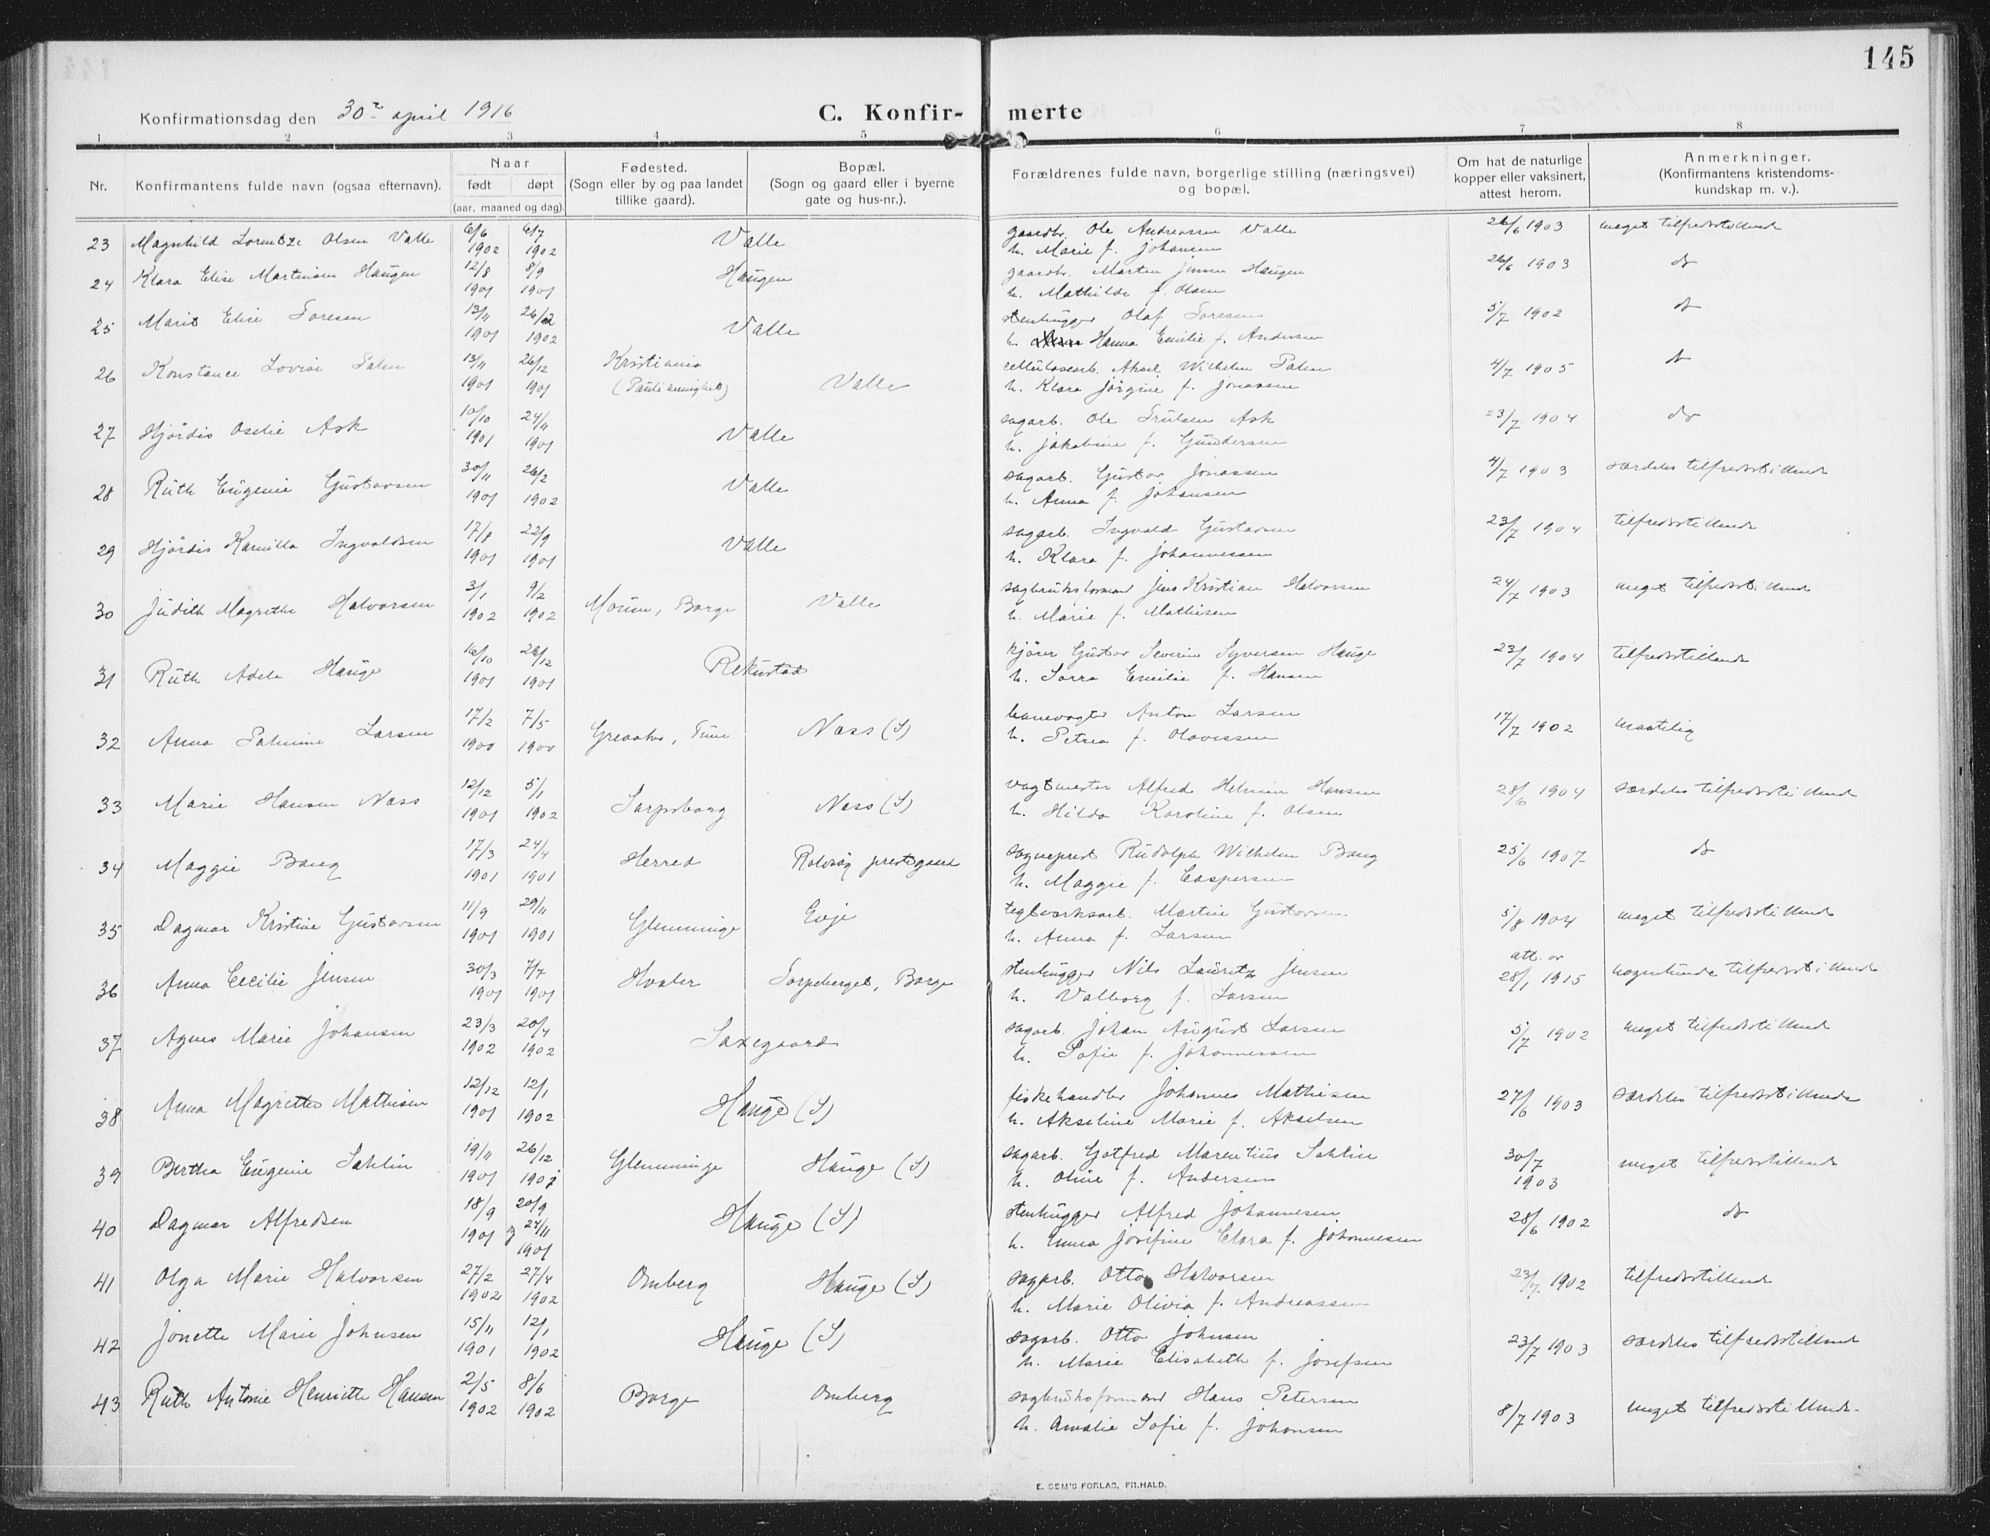 145
Konfirmationsdag den 30te april 1916
C. Konfir- merte
1 2 3 4 5 6 7 8
Nr. Konfirmantens fulde navn (ogsaa efternavn). Naar født døpt (aar, maaned og dag). Fødested. (Sogn eller by og paa landet tillike gaard). Bopæl. (Sogn og gaard eller i byerne gate og hus-nr.). Forældrenes fulde navn, borgerlige stilling (næringsvei) og bopæl. Om hat de naturlige kopper eller vaksinert, attest herom. Anmerkninger. (Konfirmantens kristendoms- kundskap m. v.).
23 Magnhild Lorentze Olsen Valle 6/6 1902 6/7 1902 Valle gaardbr. Ole Andreassen Valle 26/6 1903 meget tilfredsstillende
h. Marie f. Johansen
24 Klara Elise Martinsen Haugen 12/8 1901 8/9 1901 Haugen gaardbr. Martin Jensen Haugen 26/6 1903 do
h. Mathilde f. Olsen
25 Marit Elise Toresen 13/11 1901 26/2 1902 Valle stenhugger Olaf Toresen 5/7 1902 do
h. Hanna Emilie f. Andersen
26 Konstance Lovise Palm 13/11 1901 26/12 1901 Kristiania Valle cellulosearb. Aksel Wilhelm Palm 4/7 1905 do
h. Klara Jørgine f. Jonassen
27 Hjördis Oselie Ask 10/10 1901 24/11 1901 Valle sagarb. Ole Trulsen Ask 23/7 1904 do
h. Jakobine f. Gundersen
28 Ruth Eugenie Gustavsen 30/11 1901 26/2 1902 Valle sagarb. Gustav Jonassen 4/7 1903 særdeles tilfredsstillende
h. Anna f. Johansen
29 Hjördis Kamilla Ingvaldsen 17/8 1901 22/9 1901 Valle sagarb. Ingvald Gustavsen 23/7 1904 tilfredsstillende
h. Klara f. Johannessen
30 Judith Magrethe Halvorsen 3/1 1902 9/2 1902 Moum, Borge Valle sagbruksformand Jens Kristian Halvorsen 24/7 1903 meget tilfredsstillende
h. Marie f. Mathisen
31 Ruth Adele Hauge 16/10 1901 26/12 1901 Rekustad kjører Gustav Severin Syversen Hauge 23/7 1904 tilfredsstillende
h. Sorra Emilie f. Hansen
32 Anna Palmine Larsen 17/2 1900 7/5 1900 Greaaker, Tune Næss (S) banevogter Anton Larsen 17/7 1902 maatelig
h. Petrea f. Olavessen
33 Marie Hansen Næss 12/12 1901 5/1 1902 Sarpsborg Næss (S) vagtmester Alfred Helmin Hansen 28/6 1904 særdeles tilfredsstillende
h. Hilda Karoline f. Olsen
34 Maggie Bang 17/3 1901 24/4 1901 Herred Rolvsøy prestegaard sogneprest Rudolph Wilhelm Bang 25/6 1907 do
h. Maggie f. Caspersen
35 Dagmar Kristine Gustavsen 11/9 1901 29/11 1901 Glemminge Evje teglverksarb. Martin Gustavsen 5/8 1904 meget tilfredsstillende
h. Anna f. Larsen
36 Anna Cecilie Jensen 30/3 1901 7/7 1901 Hvaler Torpeberget, Borge stenhugger Nils Lauretz Jensen att. av 28/1 1915 nogenlunde tilfredsstillende
h. Valborg f. Larsen
37 Agnes Marie Johansen 23/3 1902 20/4 1902 Saxegaard sagarb. Johan August Larsen 5/7 1902 meget tilfredsstillende
h. Sofie f. Johannessen
38 Anna Magrethe Mathisen 12/12 1901 12/1 1902 Hauge (S) fiskehandler Johannes Mathisen 27/6 1903 særdeles tilfredsstillende
h. Akseline Marie f. Akselsen
39 Bertha Eugenie Sahlin 19/11 1901 26/12 1901 Glemminge Hauge (S) sagarb. Gotfred Marentius Sahlin 30/7 1903 meget tilfredsstillende
h. Oline f. Andersen
40 Dagmar Alfredsen 18/9 1901 20/9 24/11 1901 Hauge (S) stenhugger Alfred Johannesen 28/6 1902 do
h. Emma Josefine Clara f. Johannesen
41 Olga Marie Halvorsen 27/2 1902 27/4 1902 Omberg Hauge (S) sagarb. Otto Halvorsen 23/7 1902 tilfredsstillende
h. Marie Olivia f. Andreassen
42 Jonette Marie Johnsen 15/11 1901 12/1 1902 Hauge (S) sagarb. Otto Johnsen 23/7 1903 særdeles tilfredsstillende
h. Marie Elisabeth f. Josefsen
43 Ruth Antonie Henriette Hansen 2/5 1902 8/6 1902 Borge Omberg sagbruksformand Hans Petersen 8/7 1903 meget tilfredsstillende
h. Amalie Sofie f. Johansen
E. SEM'S FORLAG, FR.HALD.